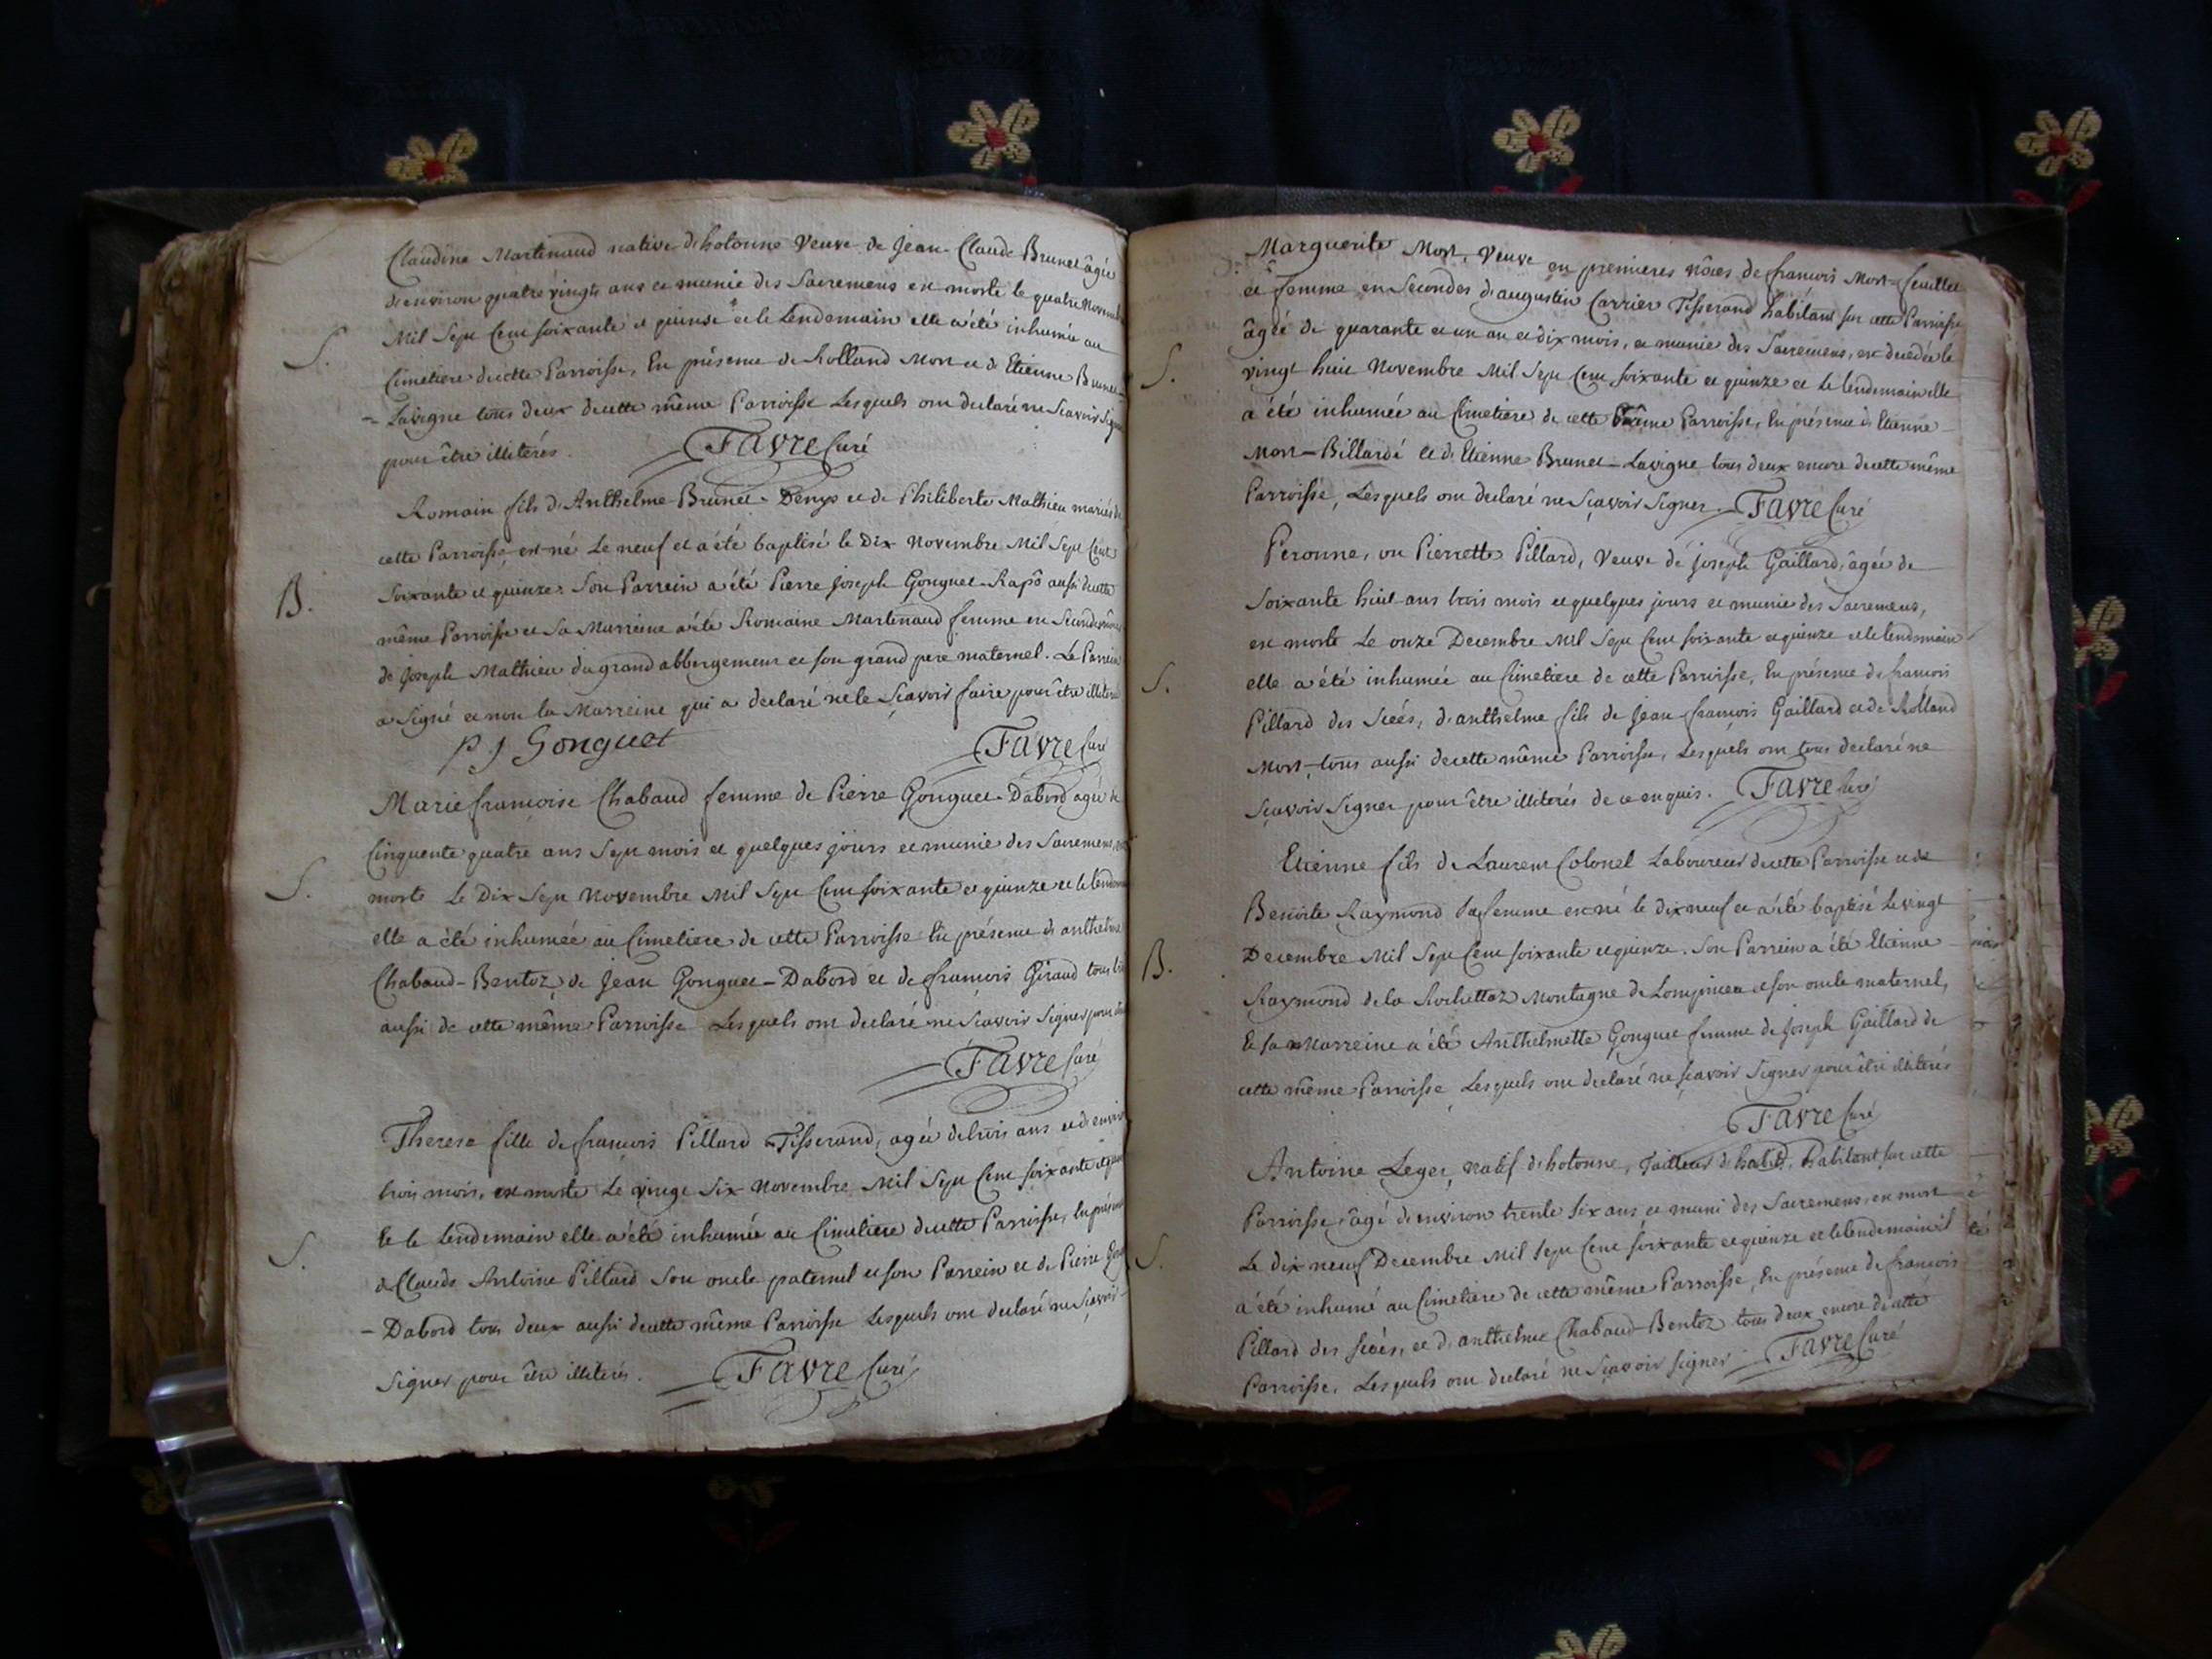 Claudine Martinaud native d'hotonne Veuve de Jean-Claude Brunet âgée
d'environ quatre vingts ans et munie des Sacremens est morte le quatre Novemb
Mil Sept Cent soixante et quinze et le Lendemain elle a été inhumée au
S.
Cimetiere de cette Parroisse, En présence de Rolland Mort et de Etienne Brunet
- Lavigne tous deux de cette même Parroisse Lesquels ont declaré ne Scavoir Signer
pour être illitérés. Favre Curé
Romain fils d'Anthelme Brunet-Denys et de Philiberte Mathieu mariés de
cette Parroisse est né Le neuf et a été baptisé le Dix Novembre Mil Sept Cent
B.
Soixante et quinze. Son Parrein a été Pierre joseph Gonguet-Rapô aussi de cette
même Parroisse et Sa Marreine a été Romaine Martinaud femme en Secondes nôces
de Joseph Mathieu du grand abbergement et son grand pere maternel. Le Parrein
a Signé et non la Marreine qui a declaré ne le Sçavoir faire pour être illitérée
p j Gonguet Favre Curé
Marie françoise Chabaud femme de Pierre Gonguet-Dabord agée de
Cinquente quatre ans Sept mois et quelques jours et munie des Sacremens, est
S.
morte Le Dix Sept Novembre Mil Sept Cent soixante et quinze et le lendemain
elle a été inhumée au Cimetiere de cette Parroisse En présence d'anthelme
Chabaud-Bentoz, de Jean Gonguet-Dabord et de françois Giraud tous
aussi de cette même Parroisse Lesquels ont declaré ne Scavoir Signer pour
Favre Curé
Therese fille de françois Pillard Tisserand, agée de trois ans et d'environ
trois mois, est morte Le vingt Six Novembre Mil Sept Cent soixante et quin
S.
Et le Lendemain elle a été inhumée au Cimetiere de cette Parroisse, En présence
de Claude Antoine Pillard Son oncle paternel et son Parrein et de Pierre Gon
- Dabord tous deux aussi de cette même Parroisse Lesquels ont declaré ne Scavoir
Signer pour être illitérés. Favre Curé
Marguerite Mort, Veuve en premieres nôces de françois Mort-feuillet
et femme en Secondes d'augustin Carrier Tisserand habitant sur cette Parroisse
âgée de quarante et un an et dix mois, et munie des Sacremens, est decedée le
S.
vingt huit Novembre Mil Sept Cent soixante et quinze et Le lendemain elle
a été inhumée au Cimetiere de cette même Parroisse, En présence d'Etienne
Mort-Billardé et d'Etienne Brunet-Lavigne tous deux encore de cette même
Parroisse, Lesquels ont declaré ne Sçavoir Signer. Favre Curé
Peronne, ou Pierrette Pillard, Veuve de joseph Gaillard, âgée de
Soixante huit ans trois mois et quelques jours et munie des Sacremens,
est morte Le onze Decembre Mil Sept Cent soixante et quinze et le lendemain
S.
elle a été inhumée au Cimetiere de cette Parroisse, En présence de françois
Pillard des Sciés, d'anthelme fils de Jean françois Gaillard et de Rolland
Mort, tous aussi de cette même Parroisse, Lesquels ont tous declaré ne
Sçavoir Signer pour être illitérés de ce enquis. Favre Curé
Etienne fils de Laurent Colonel Laboureur de cette Parroisse et de
Benoite Raymond sa femme est né le dix neuf et a été baptisé Le vingt
B.
Decembre Mil Sept Cent soixante et quinze. Son Parrein a été Etienne
Raymond de la Rochettaz Montagne de Lompnieu et son oncle maternel,
Et sa Marreine a été Anthelmette Gonguet femme de Joseph Gaillard de
cette même Parroisse Lesquels ont declaré ne scavoir Signer pour être illitérés
Favre Curé
Antoine Leger, natif d'hotonne, Tailleur d'habit, habitant sur cette
Parroisse, âgé d'environ trente six ans et muni des Sacremens, est mort
S.
Le dix neuf Decembre Mil Sept Cent soixante et quinze et le lendemain il
a été inhumé au Cimetiere de cette même Parroisse, En présence de françois
Pillard des Sciés, et d'anthelme Chabaud-Bentoz tous deux encore de cette
Parroisse, Lesquels ont declaré ne Sçavoir signer Favre Curé